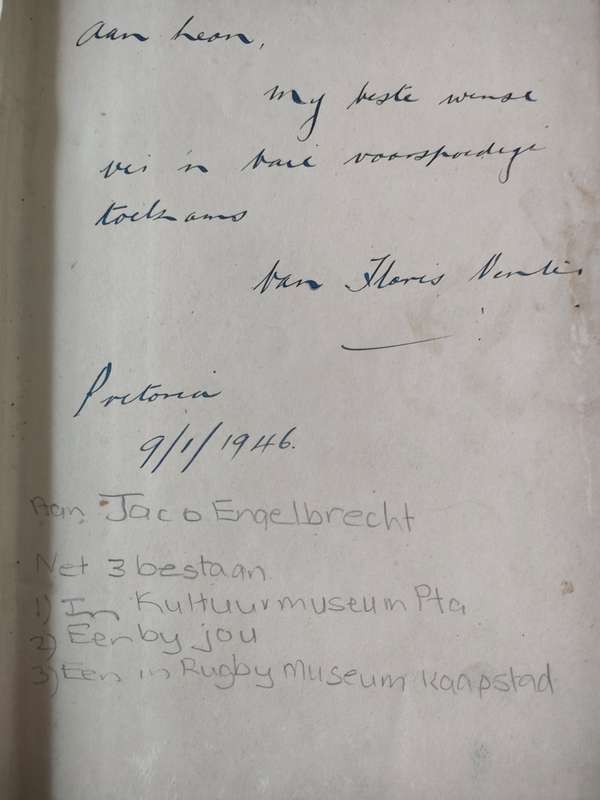 Aan Leon,
My beste wense
vir 'n baie voorspoedige
toekoms
Van Floris Venter
Pretoria
9/1/1946.
Aan Jaco Engelbrecht
Net 3 bestaan
1) In Kultuurmuseum Pta
2) Een by jou
3) Een in Rugby Museum Kaapstad